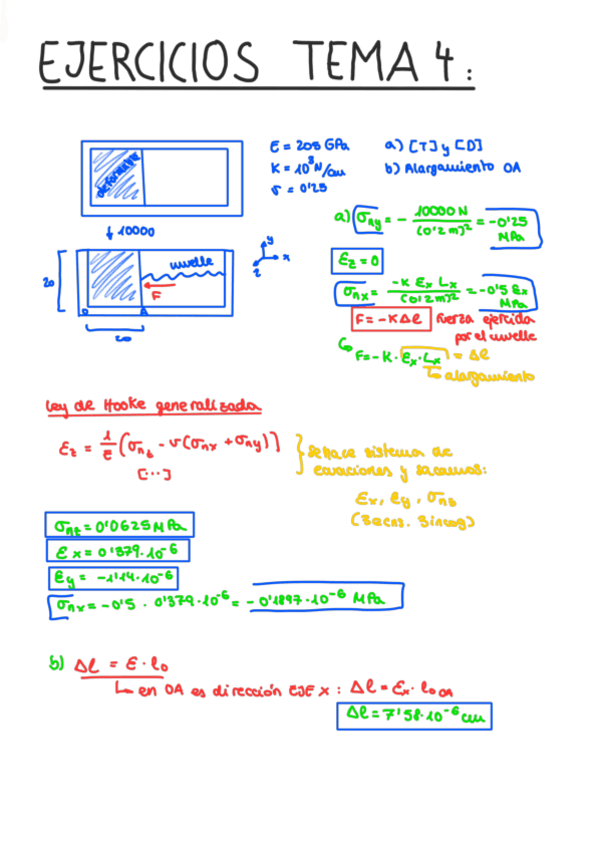 EJERCICIOS TEMA 4:
E = 205 GPa
K = 10³ N/cm
ν = 0'25
a) [T] y [D]
b) Alargamiento OA
deformable
↓ 10000
20
muelle
F
O
A
20
y
x
z
a) σny = - 10000 N / (0'2 m)² = -0'25 MPa
Ez = 0
σnx = -K Ex Lx / (0'2 m)² = -0'5 Ex MPa
F = -K Δl fuerza ejercida por el muelle
↳ F = -K · Ex · Lx = Δl
↳ alargamiento
Ley de Hooke generalizada
Ez = 1/E (σnz - ν(σnx + σny)]
[...]
} Se hace sistema de
ecuaciones y sacamos:
Ex, Ey, σnz
(3 ecns. 3 incog)
σnz = 0'0625 MPa
Ex = 0'379·10⁻⁶
Ey = -1'14·10⁻⁶
σnx = -0'5 · 0'379·10⁻⁶ = -0'1897·10⁻⁶ MPa
b) Δl = E · l₀
↳ en OA es dirección EJE X : Δl = Ex · l₀ OA
Δl = 7'58·10⁻⁶ cm